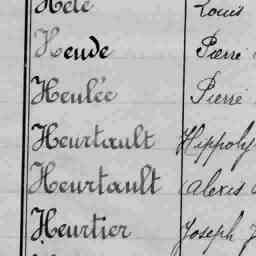 Hélé Louis
Heude Pierre
Heulée Pierre
Heurtault Hippoly
Heurtault Alexis
Heurtier Joseph J